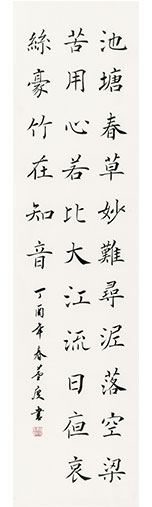 池塘春草妙難尋泥落空梁
苦用心若比大江流日夜哀
絲豪竹在知音
丁酉年春書